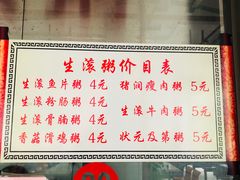 生滚粥价目表
生滚鱼片粥 4元 猪润瘦肉粥 5元
生滚粉肠粥 4元
生滚牛肉粥 5元
生滚骨腩粥 4元
香菇滑鸡粥 4元 状元及第粥 5元